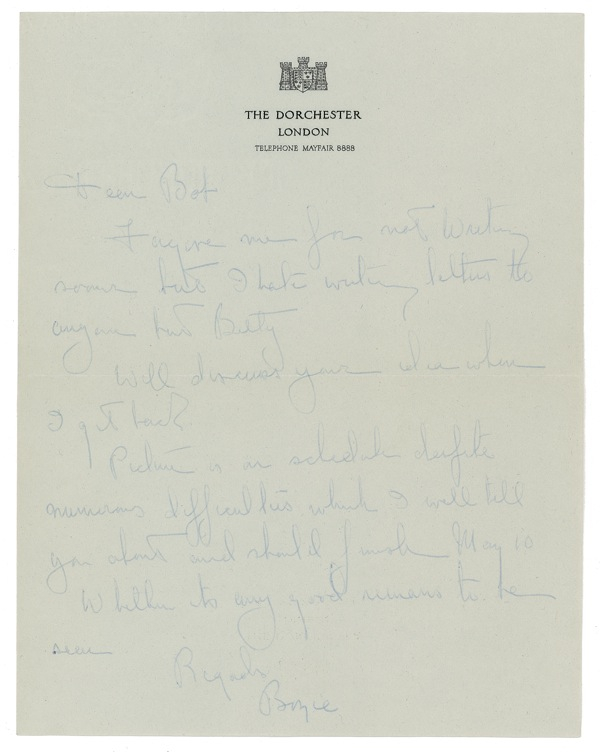 THE DORCHESTER
LONDON
TELEPHONE MAYFAIR 8888
Dear Bob
Forgive me for not writing
sooner but I hate writing letters to
anyone but Betty
Will discuss your idea when
I get back.
Picture is on schedule despite
numerous difficulties which I will tell
you about and should finish May 10
Whether its any good remains to be
seen
Regards